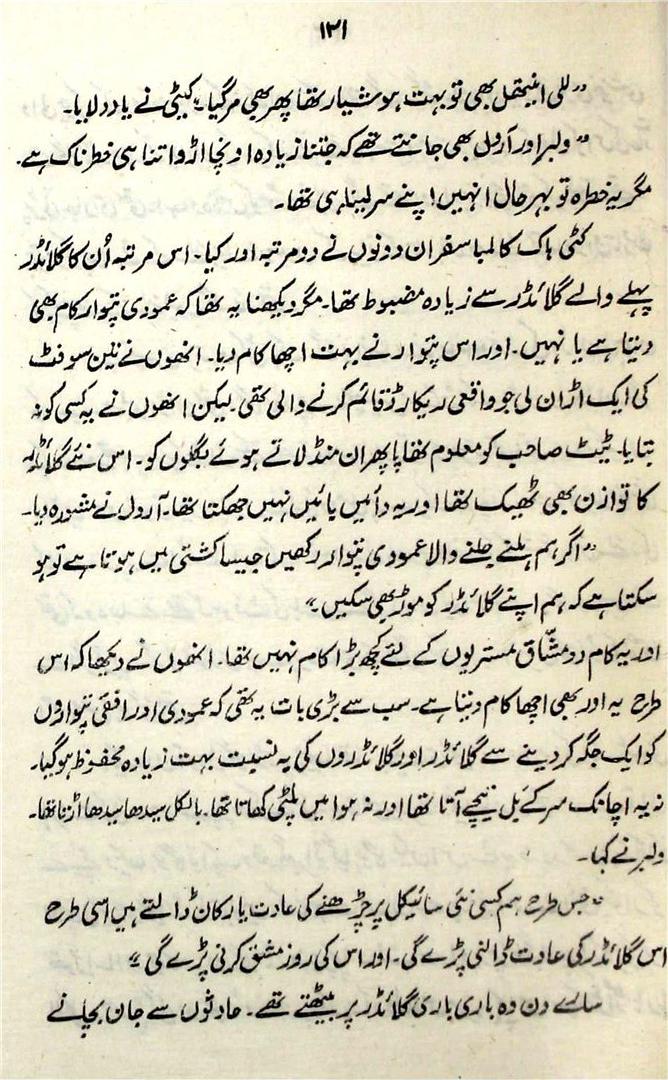 ۱۳۱
”للی انیتھل بھی تو بہت ہوشیار تھا پھر بھی مر گیا۔“ کیٹی نے یاد دلایا۔
”ولبر اور آرول بھی جانتے تھے کہ جتنا زیادہ اونچا اڑو اتنا ہی خطرناک ہے۔
مگر یہ خطرہ تو بہر حال انہیں اپنے سر لینا ہی تھا۔
کٹی ہاک کا لمبا سفر ان دونوں نے دو مرتبہ اور کیا۔ اس مرتبہ اُن کا گلائڈر
پہلے والے گلائڈر سے زیادہ مضبوط تھا۔ مگر دیکھنا یہ تھا کہ عمودی پتوار کام بھی
دیتا ہے یا نہیں۔ اور اس پتوار نے بہت اچھا کام دیا۔ انھوں نے تین سو فٹ
کی ایک اڑان لی جو واقعی ریکارڈ قائم کرنے والی تھی۔ لیکن انھوں نے یہ کسی کو نہ
بتایا۔ ٹیٹ صاحب کو معلوم تھا یا پھر ان منڈلاتے ہوئے بگلوں کو۔ اس نئے گلائڈر
کا توازن بھی ٹھیک تھا اور یہ دائیں بائیں نہیں جھکتا تھا۔ آرول نے مشورہ دیا۔
”اگر ہم ہلنے جلنے والا عمودی پتوار رکھیں جیسا کشتی میں ہوتا ہے تو ہو
سکتا ہے کہ ہم اپنے گلائڈر کو موڑ بھی سکیں۔“
اور یہ کام دو مشّاق مستریوں کے لئے کچھ بڑا کام نہیں تھا۔ انھوں نے دیکھا کہ اس
طرح یہ اور بھی اچھا کام دیتا ہے۔ سب سے بڑی بات یہ تھی کہ عمودی اور افقی پتواروں
کو ایک جگہ کر دینے سے گلائڈر اور گلائڈروں کی بہ نسبت بہت زیادہ محفوظ ہو گیا۔
نہ یہ اچانک سر کے بَل نیچے آتا تھا اور نہ ہوا میں پلٹی کھاتا تھا۔ بالکل سیدھا سیدھا اڑتا تھا۔
ولبر نے کہا۔
”جس طرح ہم کسی نئی سائیکل پر چڑھنے کی عادت یا رکان ڈالتے ہیں اسی طرح
اس گلائڈر کی عادت ڈالنی پڑے گی۔ اور اس کی روز مشق کرنی پڑے گی۔“
سارے دن وہ باری باری گلائڈر پر بیٹھتے تھے۔ حادثوں سے جان بچانے